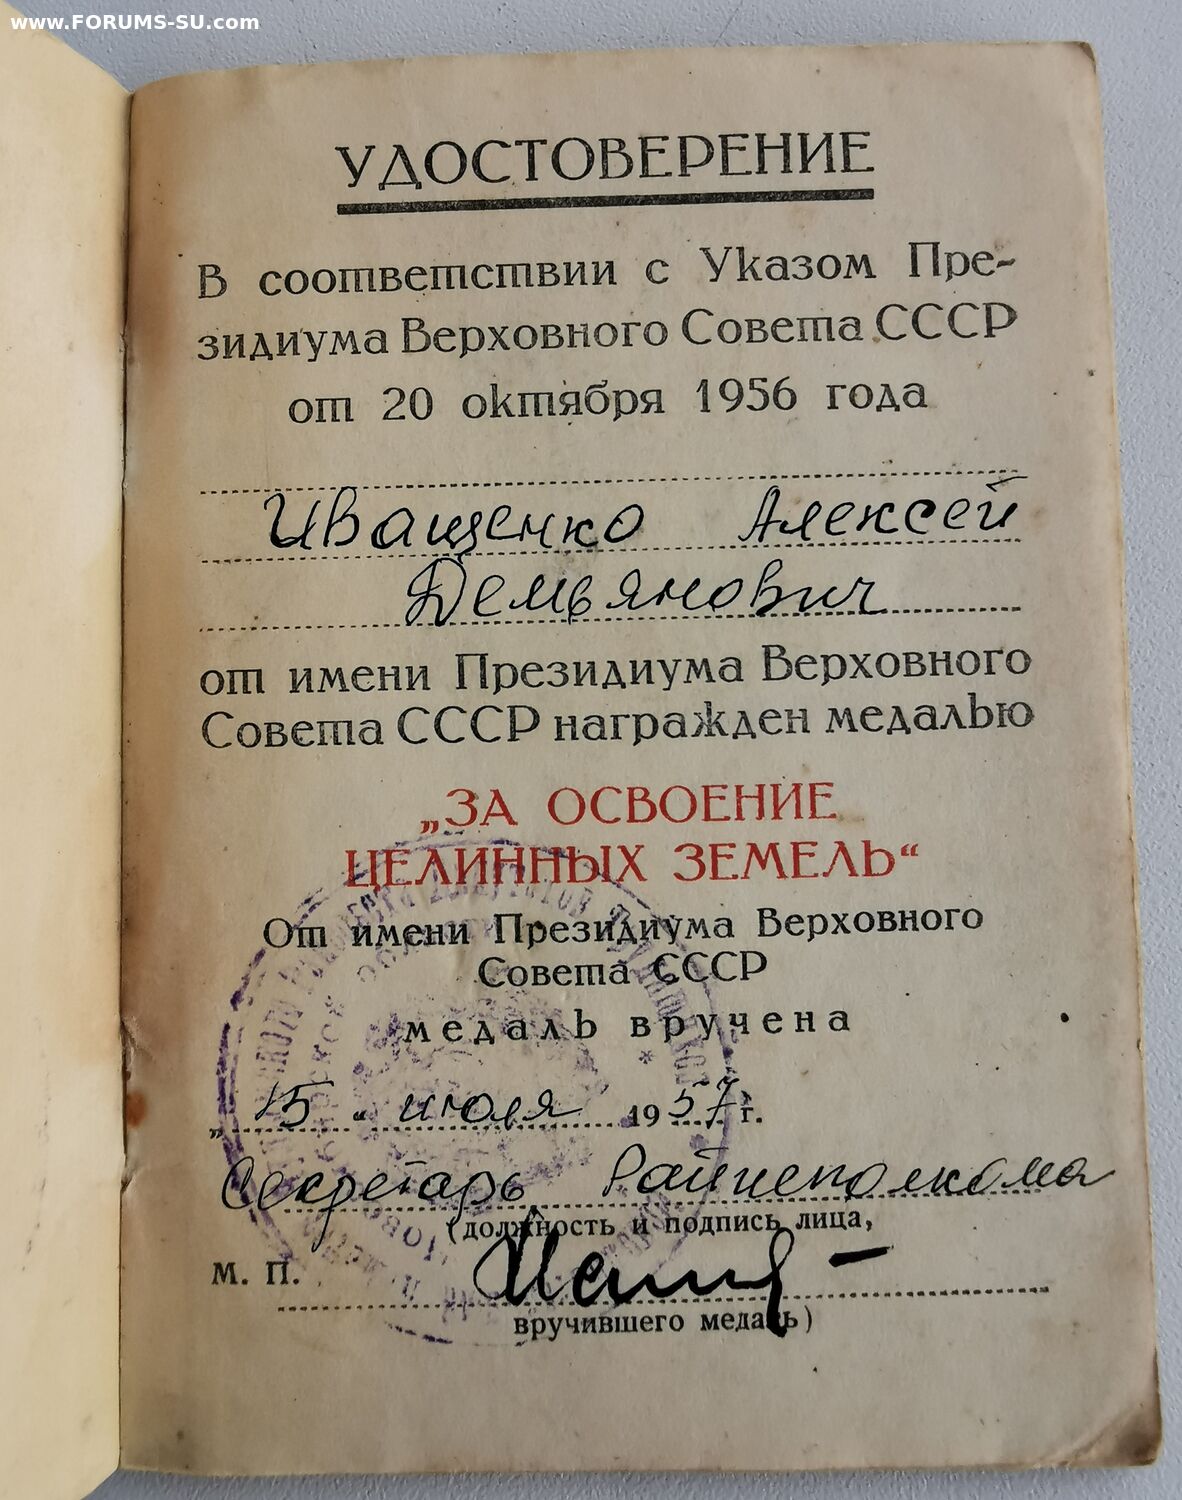 www.FORUMS-SU.com
УДОСТОВЕРЕНИЕ
В соответствии с Указом Пре-
зидиума Верховного Совета СССР
от 20 октября 1956 года
Иващенко Алексей
Демьянович
от имени Президиума Верховного
Совета СССР награжден медалью
„ЗА ОСВОЕНИЕ
ЦЕЛИННЫХ ЗЕМЕЛЬ“
От имени Президиума Верховного
Совета СССР
медаль вручена
„15“ июля 1957 г.
Секретарь Райисполкома
(должность и подпись лица,
М. П.
вручившего медаль)